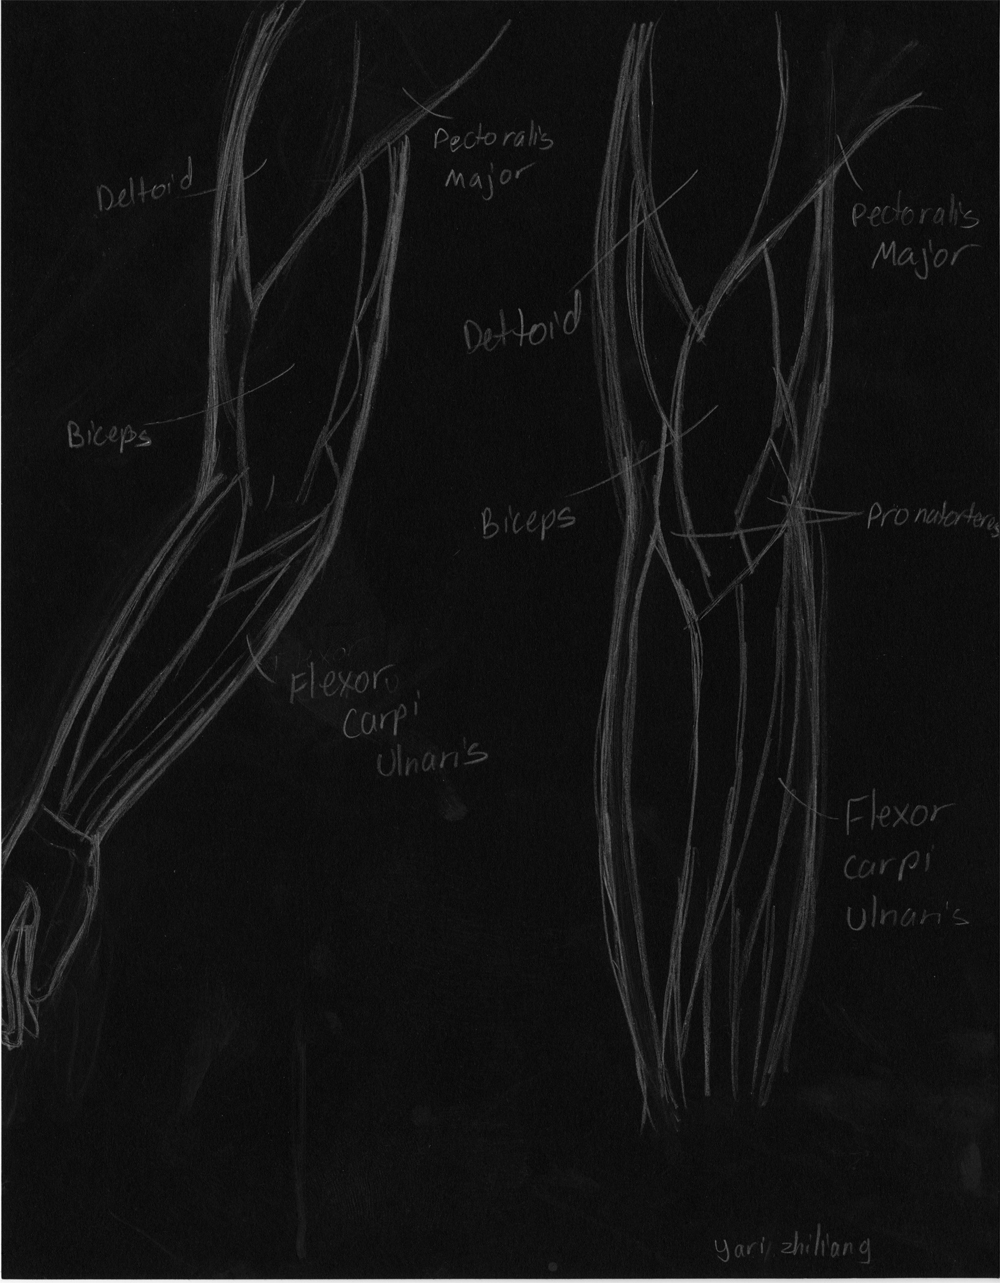 Pectoralis
Major
Deltoid
Biceps
Flexor
Carpi
Ulnaris
Pectoralis
Major
Deltoid
Biceps
Pronatorteres
Flexor
carpi
Ulnaris
yari zhiliang